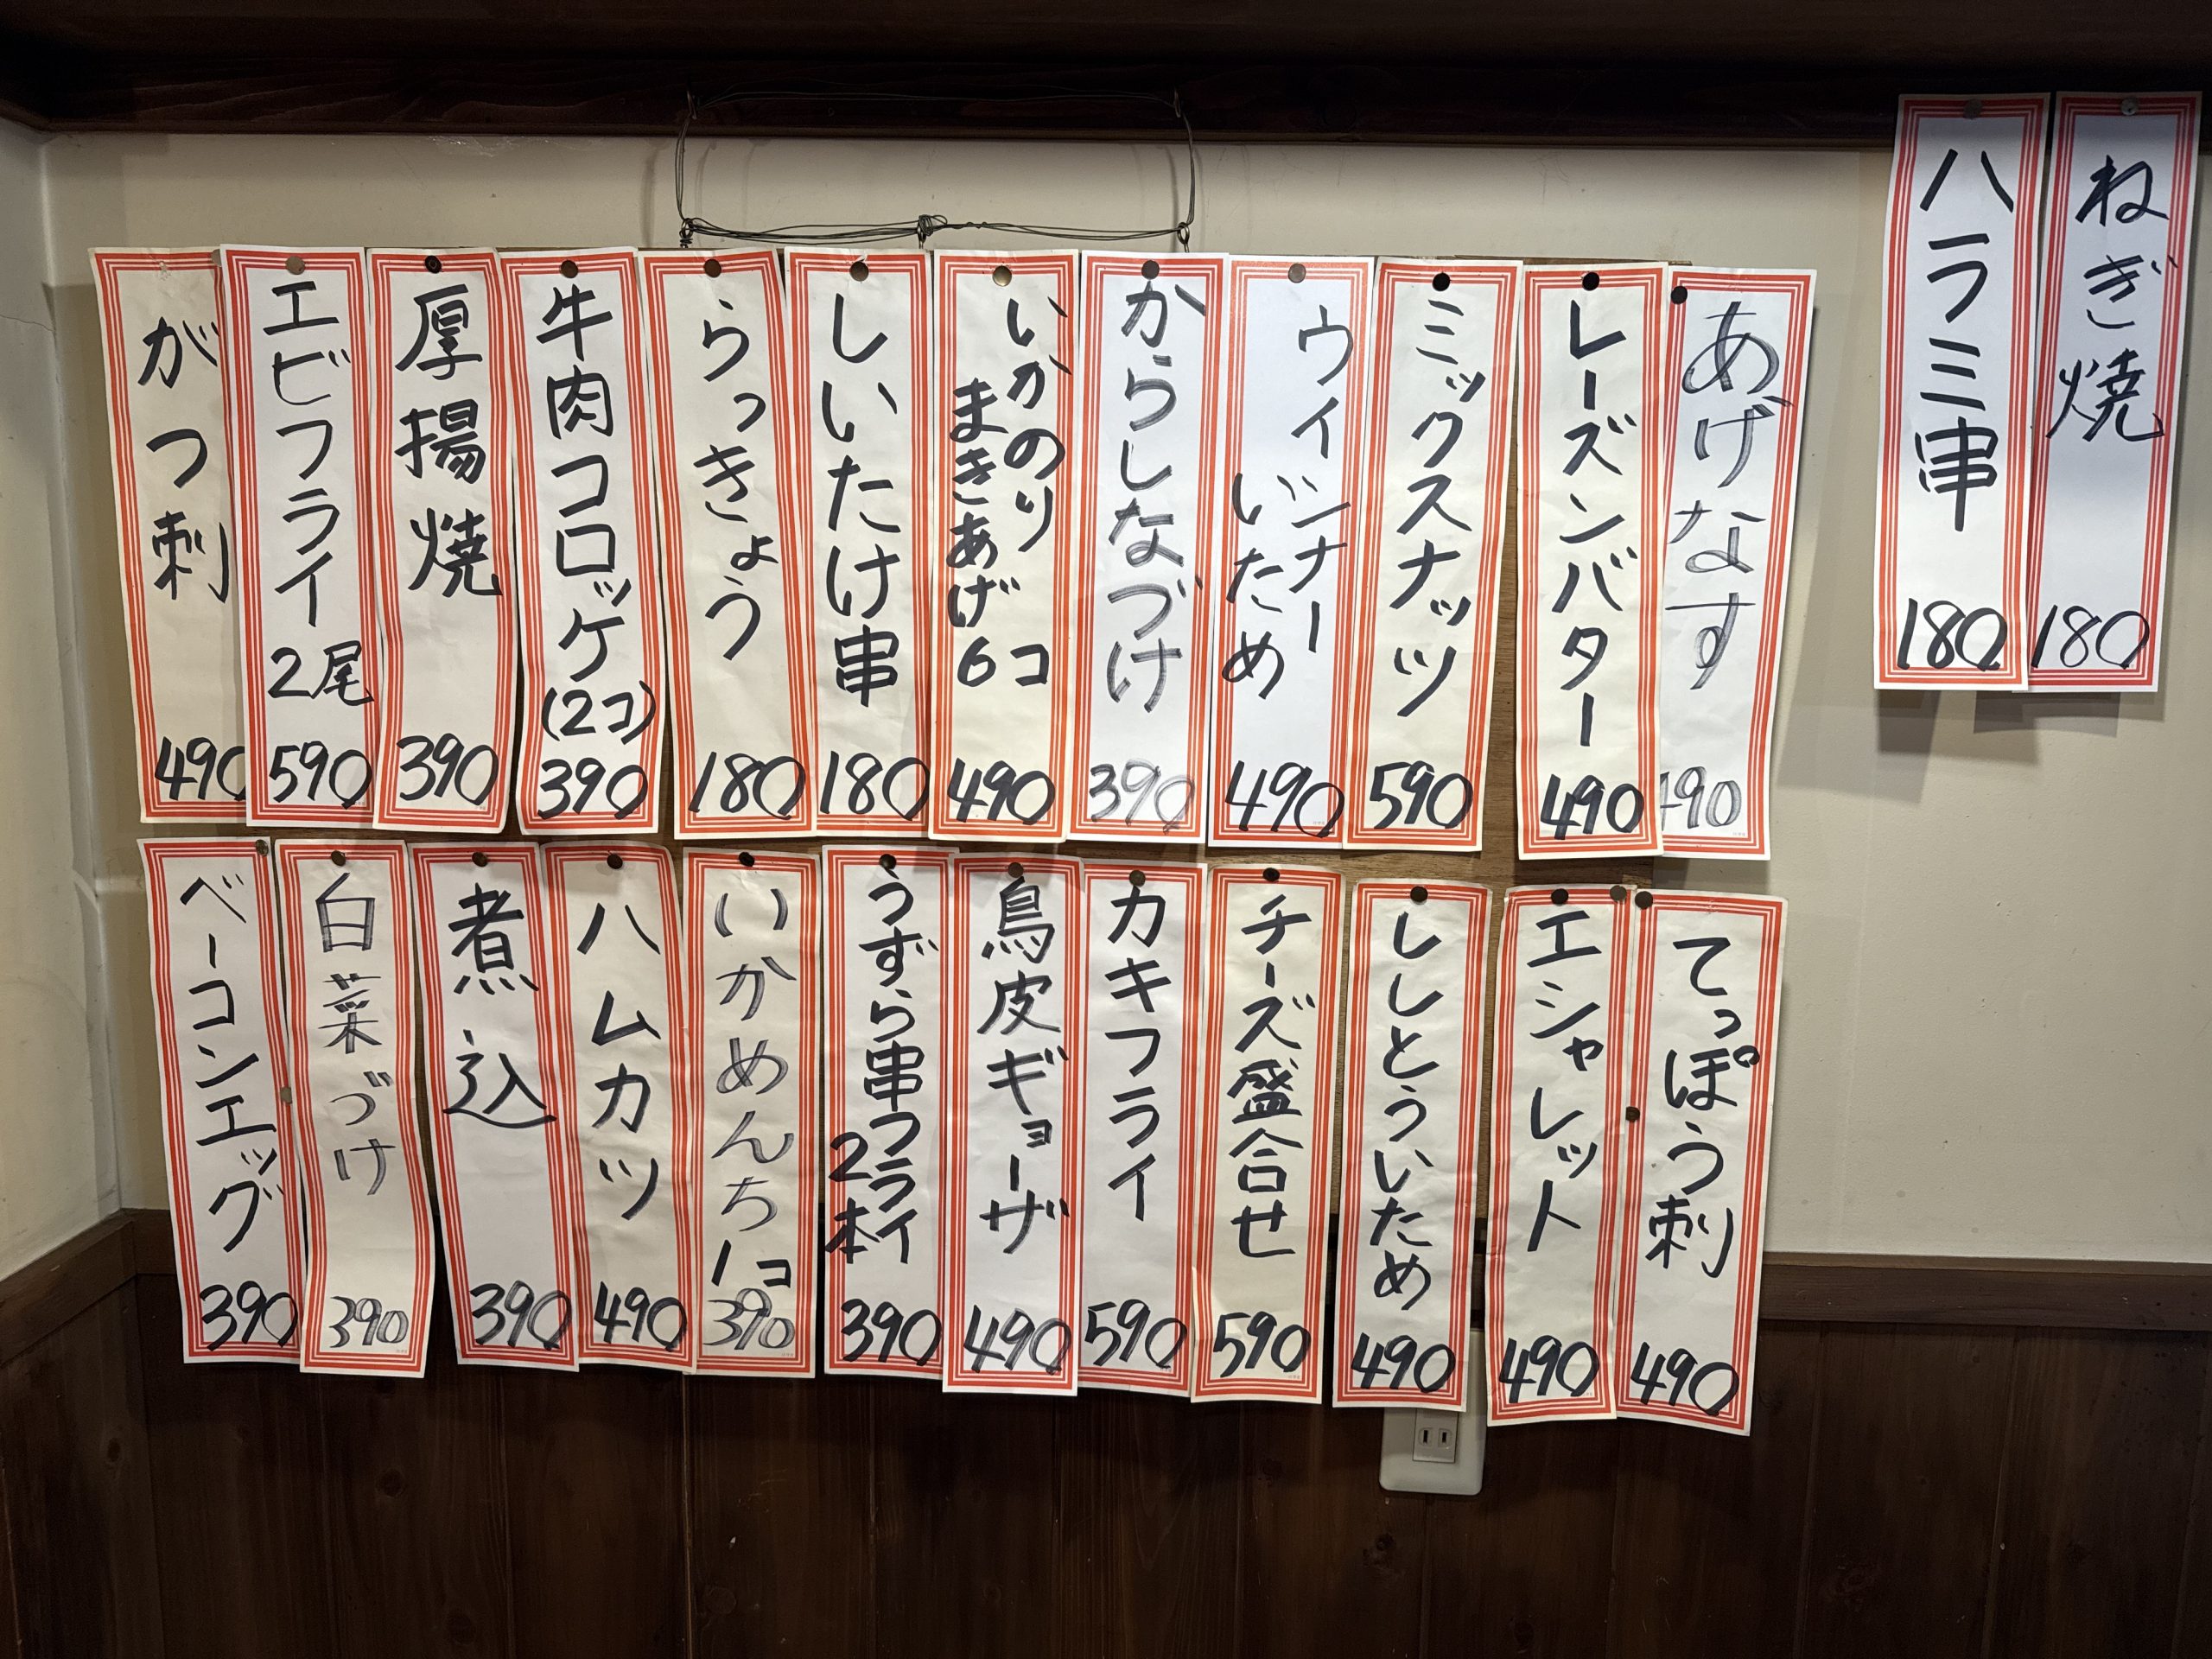 ねぎ焼
180
ハラミ串
180
あげなす
490
レーズンバター
490
ミックスナッツ
590
ウインナー
いため
490
からしなづけ
390
いかのり
まきあげ
6コ
490
しいたけ串
180
らっきょう
180
牛肉コロッケ
(2コ)
390
厚揚焼
390
エビフライ
2尾
590
がつ刺
490
てっぽう刺
490
エシャレット
490
ししとういため
490
チーズ盛合せ
590
カキフライ
590
鳥皮ギョーザ
490
うずら串フライ
2本
390
いかめんち
1コ
390
ハムカツ
490
煮込
390
白菜づけ
390
ベーコンエッグ
390